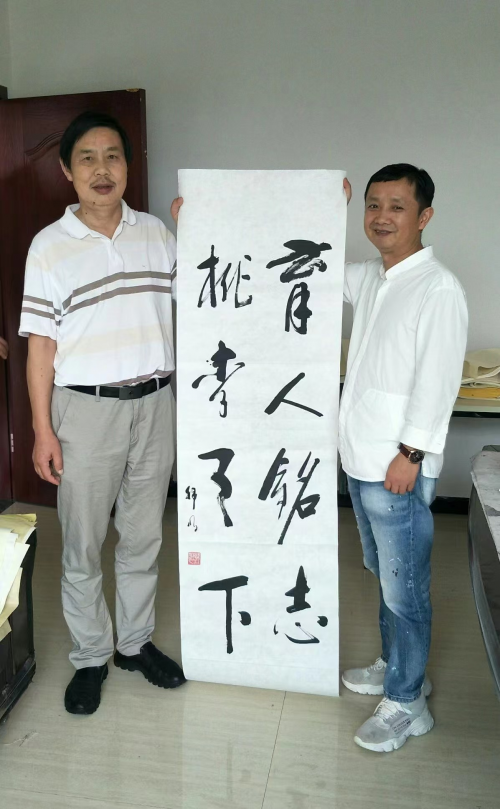 育人銘志
桃李天下